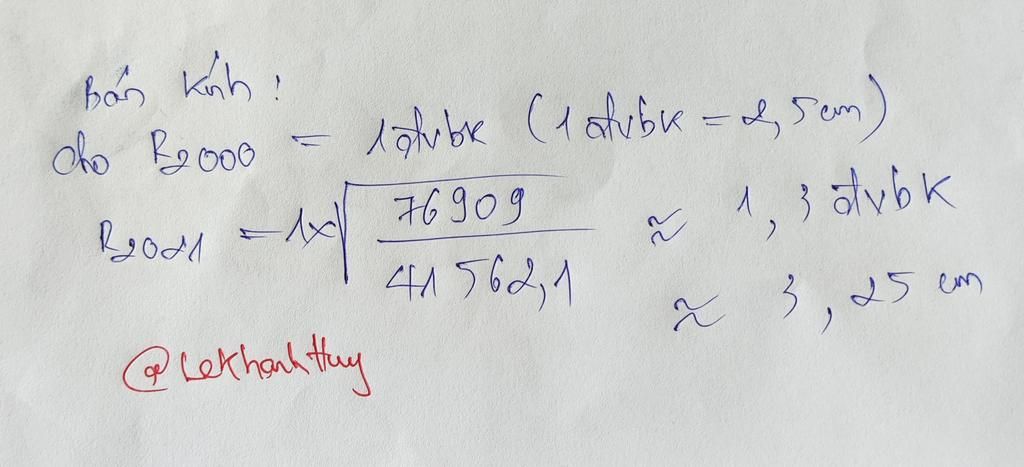 Bán kính :
cho R2000 = 1 đvbk (1 đvbk = 2,5cm)
R2021 = 1x√(76909 / 41562,1) ≈ 1,3 đvbk
≈ 3,25 cm
@LeKhanhHuy